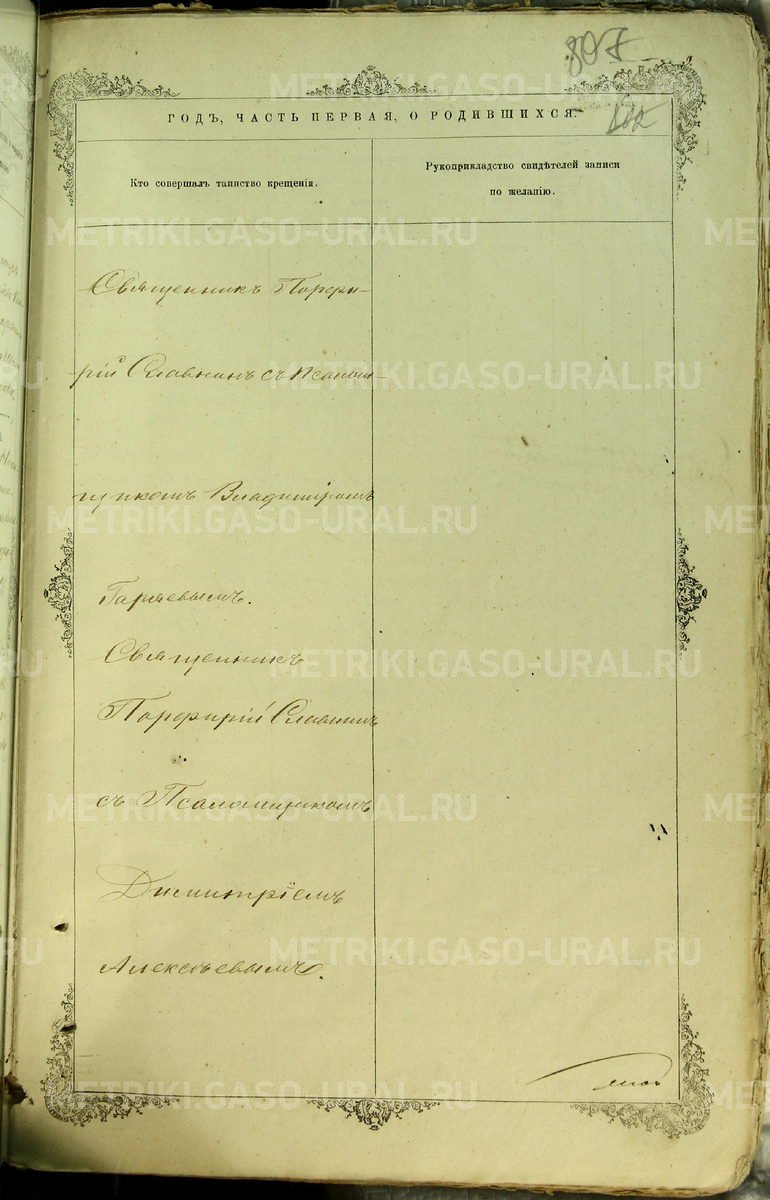 807
METRIKI.GASO-URAL.RU
ГОДЪ, ЧАСТЬ ПЕРВАЯ, О РОДИВШИХСЯ.
Кто совершалъ таинство крещенія.
Рукоприкладство свидѣтелей записи
по желанію.
Священникъ Порфи-
рій Славнинъ съ Псалом-
щикомъ Владиміромъ
Гаряевымъ.
Священникъ
Порфирій Славнинъ
съ Псаломщикомъ
Димитріемъ
Алексѣевымъ.